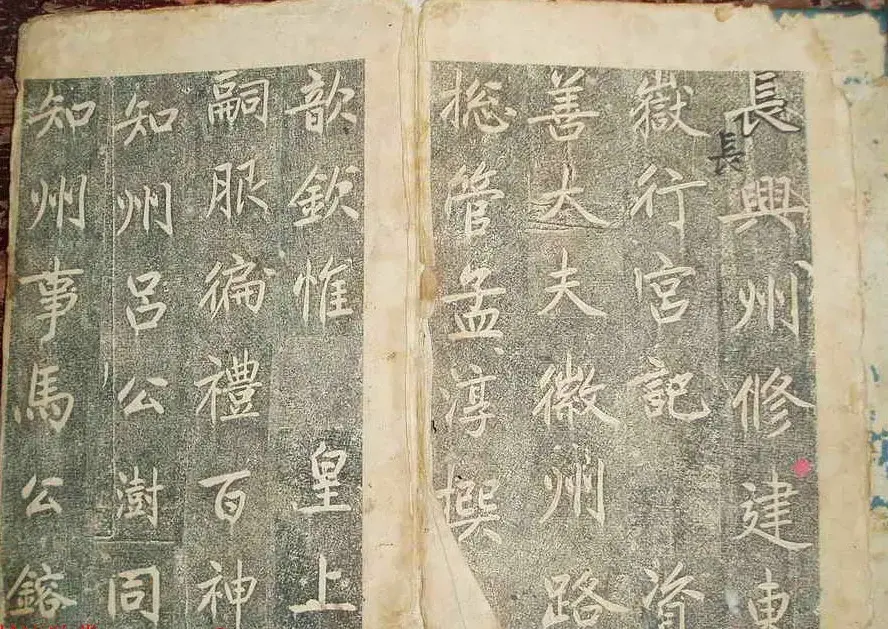 長興州修建東
嶽行宮記　資
善大夫徽州路
摠管孟淳撰
歆欽惟　皇上
嗣服徧禮百神
知州呂公澍同
知州事馬公鎔
長